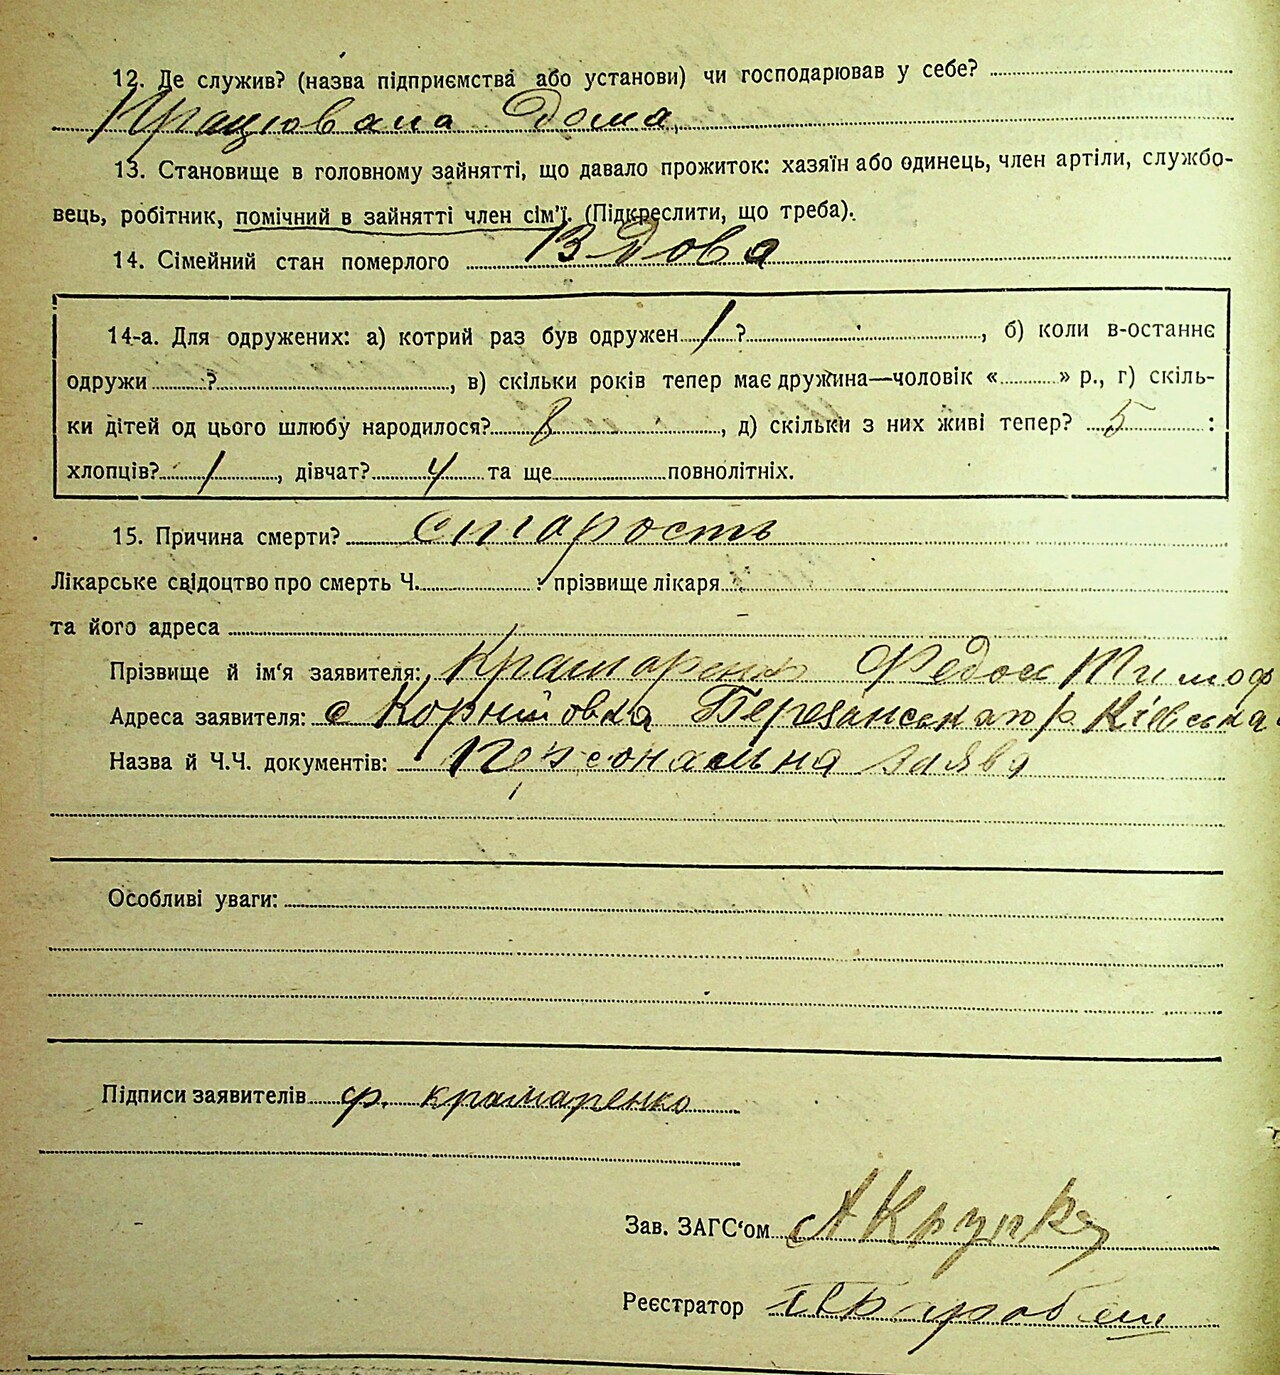 12. Де служив? (назва підприємства або установи) чи господарював у себе?
Працювала дома
13. Становище в головному зайнятті, що давало прожиток: хазяїн або одинець, член артіли, службо-
вець, робітник, помічний в зайнятті член сім'ї. (Підкреслити, що треба).
14. Сімейний стан померлого Вдова
14-а. Для одружених: а) котрий раз був одружен 1 ?, б) коли в-останнє
одружи ?, в) скільки років тепер має дружина—чоловік « » р., г) скіль-
ки дітей од цього шлюбу народилося? 8, д) скільки з них живі тепер? 5 :
хлопців? 1, дівчат? 4 та ще повнолітніх.
15. Причина смерти? старость
Лікарське свідоцтво про смерть Ч. : прізвище лікаря
та його адреса
Прізвище й ім'я заявителя: Крамаренко Федос Тимоф
Адреса заявителя: с Корніївка Березанського р. Київська
Назва й Ч.Ч. документів: Персональна заява
Особливі уваги:
Підписи заявителів ф. крамаренко
Зав. ЗАГС'ом
Реєстратор